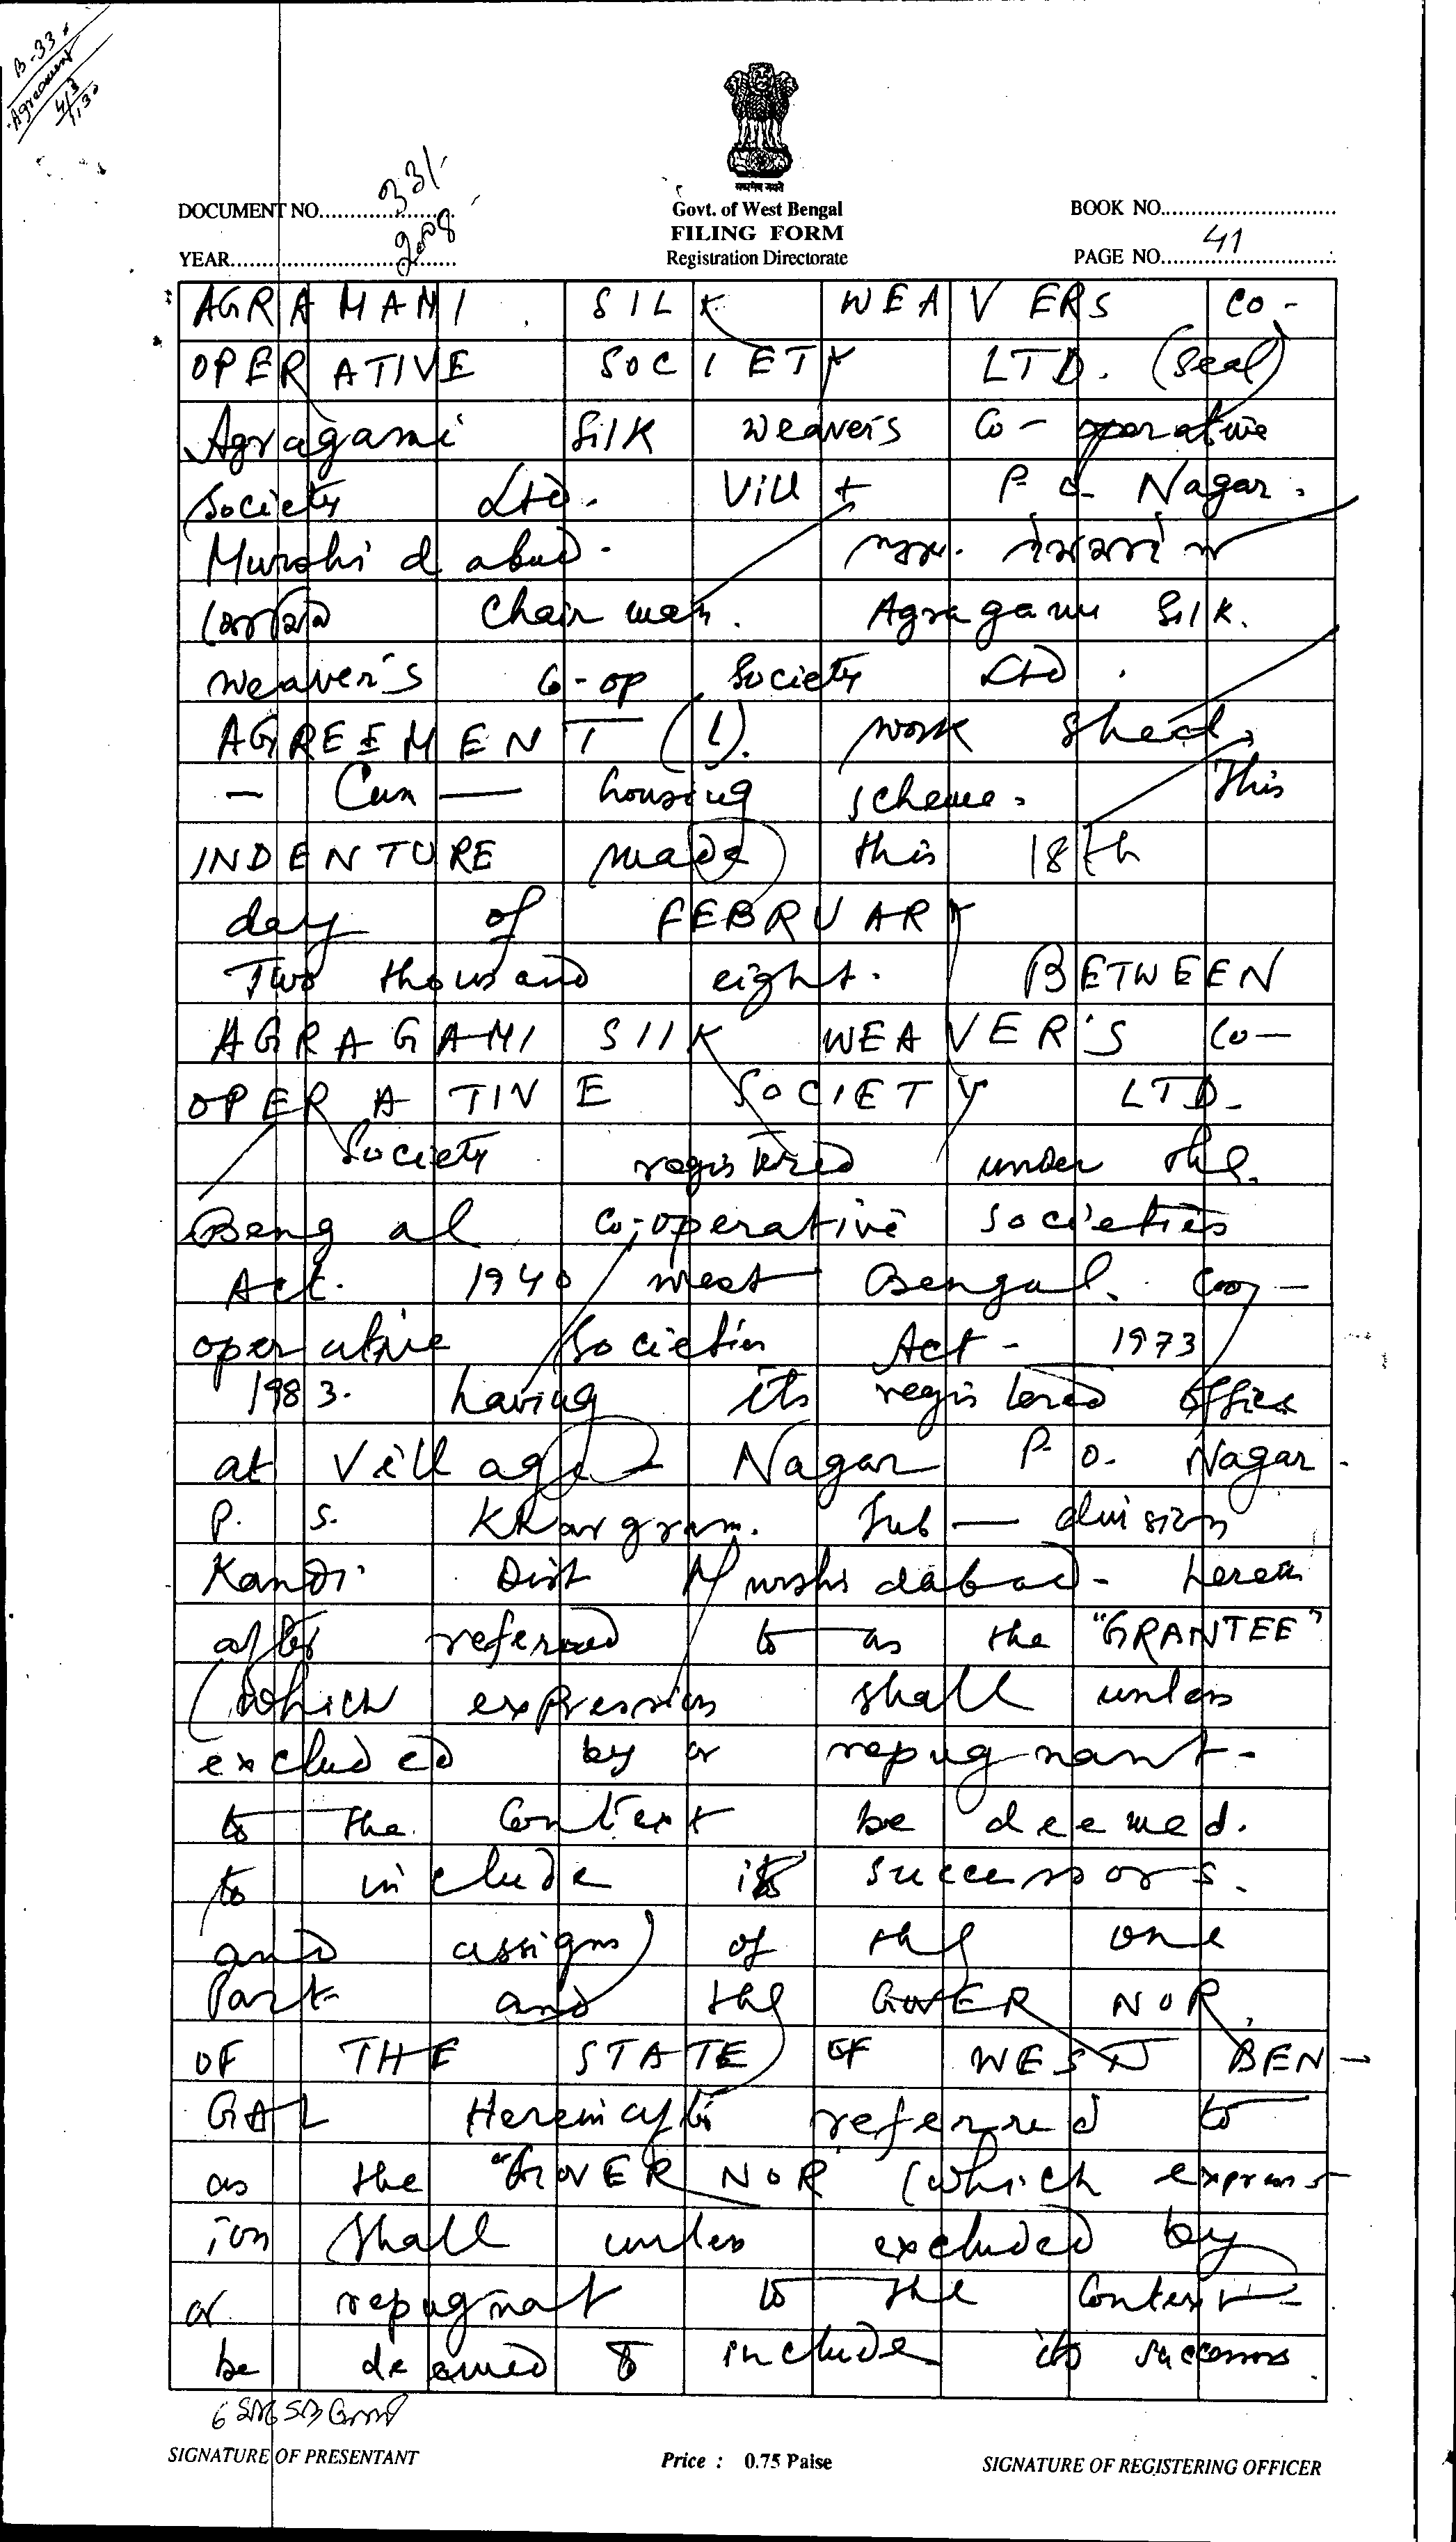 B-33
Agreement
सत्यमेव जयते
DOCUMENT NO. 331
Govt. of West Bengal
BOOK NO.
FILING FORM
YEAR 2008
Registration Directorate
PAGE NO. 41
AGRAMAMI SILK WEAVERS CO-
OPERATIVE SOCIETY LTD. (Seal)
Agragami Silk Weaver's Co-operative
Society Ltd. Vill + P.O. Nagar.
Murshidabad.
Chairman. Agragami Silk.
Weaver's Co-op Society Ltd.
AGREEMENT (1). Work Shed
- Cum - housing scheme. This
INDENTURE made this 18th
day of FEBRUARY
Two thousand eight. BETWEEN
AGRAGAMI SILK WEAVER'S CO-
OPERATIVE SOCIETY LTD-
Society registered under the
Bengal Co-operative Societies
Act. 1940 West Bengal Coo-
operative Societies Act - 1973
1983. having its registered office
at Village Nagar P.O. Nagar -
P.S. Khargram. Sub-division
Kandi Dist Murshidabad- herein
after referred to as the "GRANTEE"
(which expression shall unless
excluded by or repugnant-
to the Context be deemed.
to include its successors.
and assigns) of the one
Part and the GOVERNOR
OF THE STATE OF WEST BEN-
GAL Hereinafter referred to
as the "GOVERNOR" (which express-
ion shall unless excluded by
or repugnat to the Context-
be deemed to include its successors
SIGNATURE OF PRESENTANT
Price : 0.75 Paise
SIGNATURE OF REGISTERING OFFICER